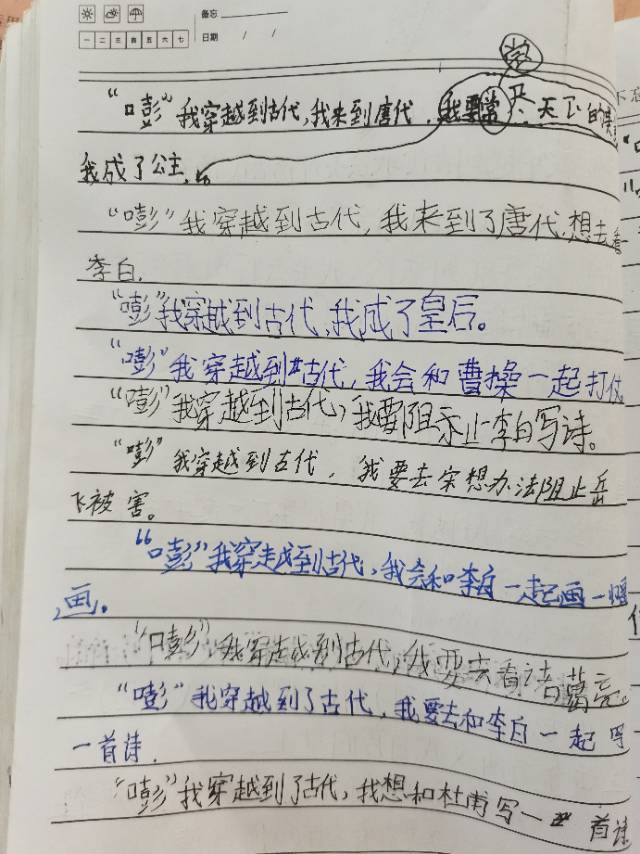 备忘
一 二 三 四 五 六 七 日期 / /
尝
“嘭”我穿越到古代,我来到唐代,我要尝尺天下的美
我成了公主,
“嘭”我穿越到古代,我来到了唐代,想去看
李白.
“嘭”我穿越到古代,我成了皇后。
“嘭”我穿越到古代,我会和曹操一起打仗
“嘭”我穿越到古代,我要阻示止李白写诗。
“嘭”我穿越到古代,我要去宋想办法阻止岳
飞被害。
“嘭”我穿越到古代,我会和李白一起画一幅
画。
“嘭”我穿越到古代,我要去看诸葛亮。
“嘭”我穿越到了古代,我要去和李白一起写
一首诗.
“嘭”我穿越到了古代,我想和杜甫写一首诗